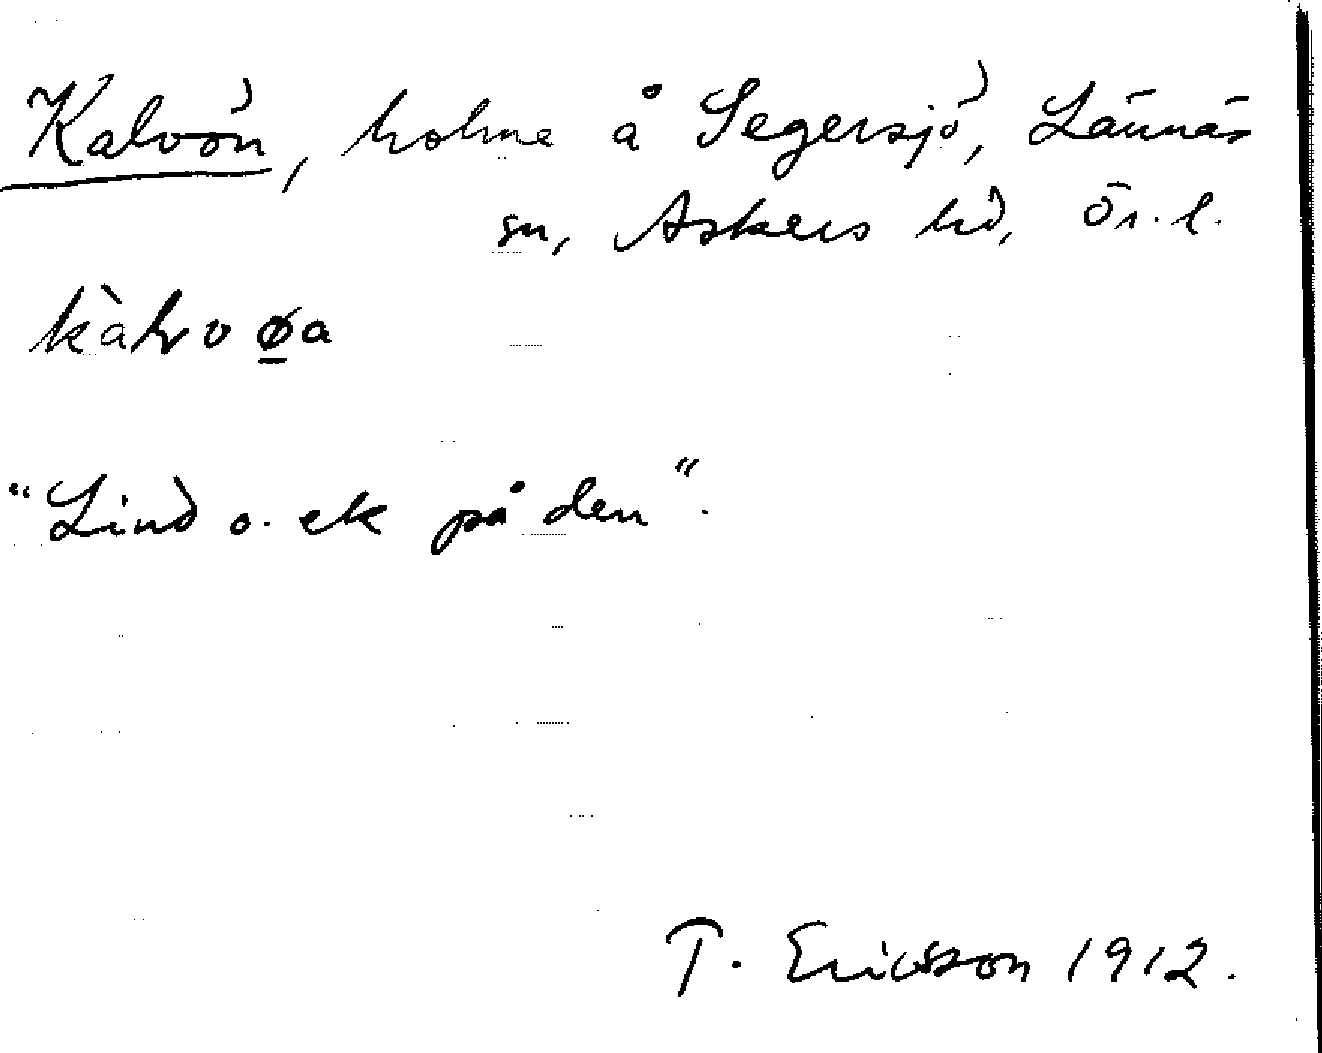 Kalvön, holme å Segersjö, Lännäs
sn, Askers hd, Ör. l.
"Lind o. ek på den".
T. Ericsson 1912.